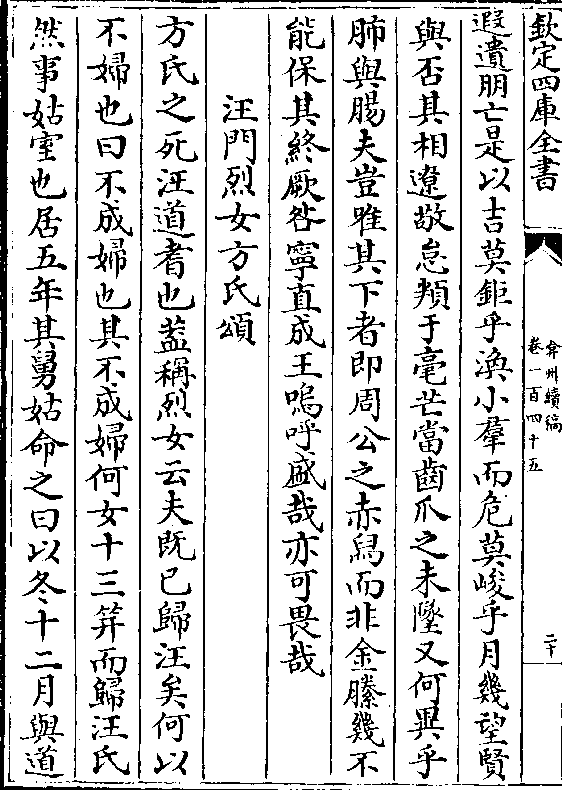 欽定四庫全書
弇州續稿
卷一百四十五
二十
遐遺朋亡是以吉莫鉅乎渙小羣而危莫峻乎月幾望賢
與否其相遼敬怠顙于毫芒當齒爪之未墜又何異乎
肺與腸夫豈唯其下者即周公之赤舄而非金縢幾不
能保其終厥咎寧直成王嗚呼盛哉亦可畏哉
汪門烈女方氏頌
方氏之死汪道耆也葢稱烈女云夫既已歸汪矣何以
不婦也曰不成婦也其不成婦何女十三笄而歸汪氏
然事姑室也居五年其舅姑命之曰以冬十二月與道